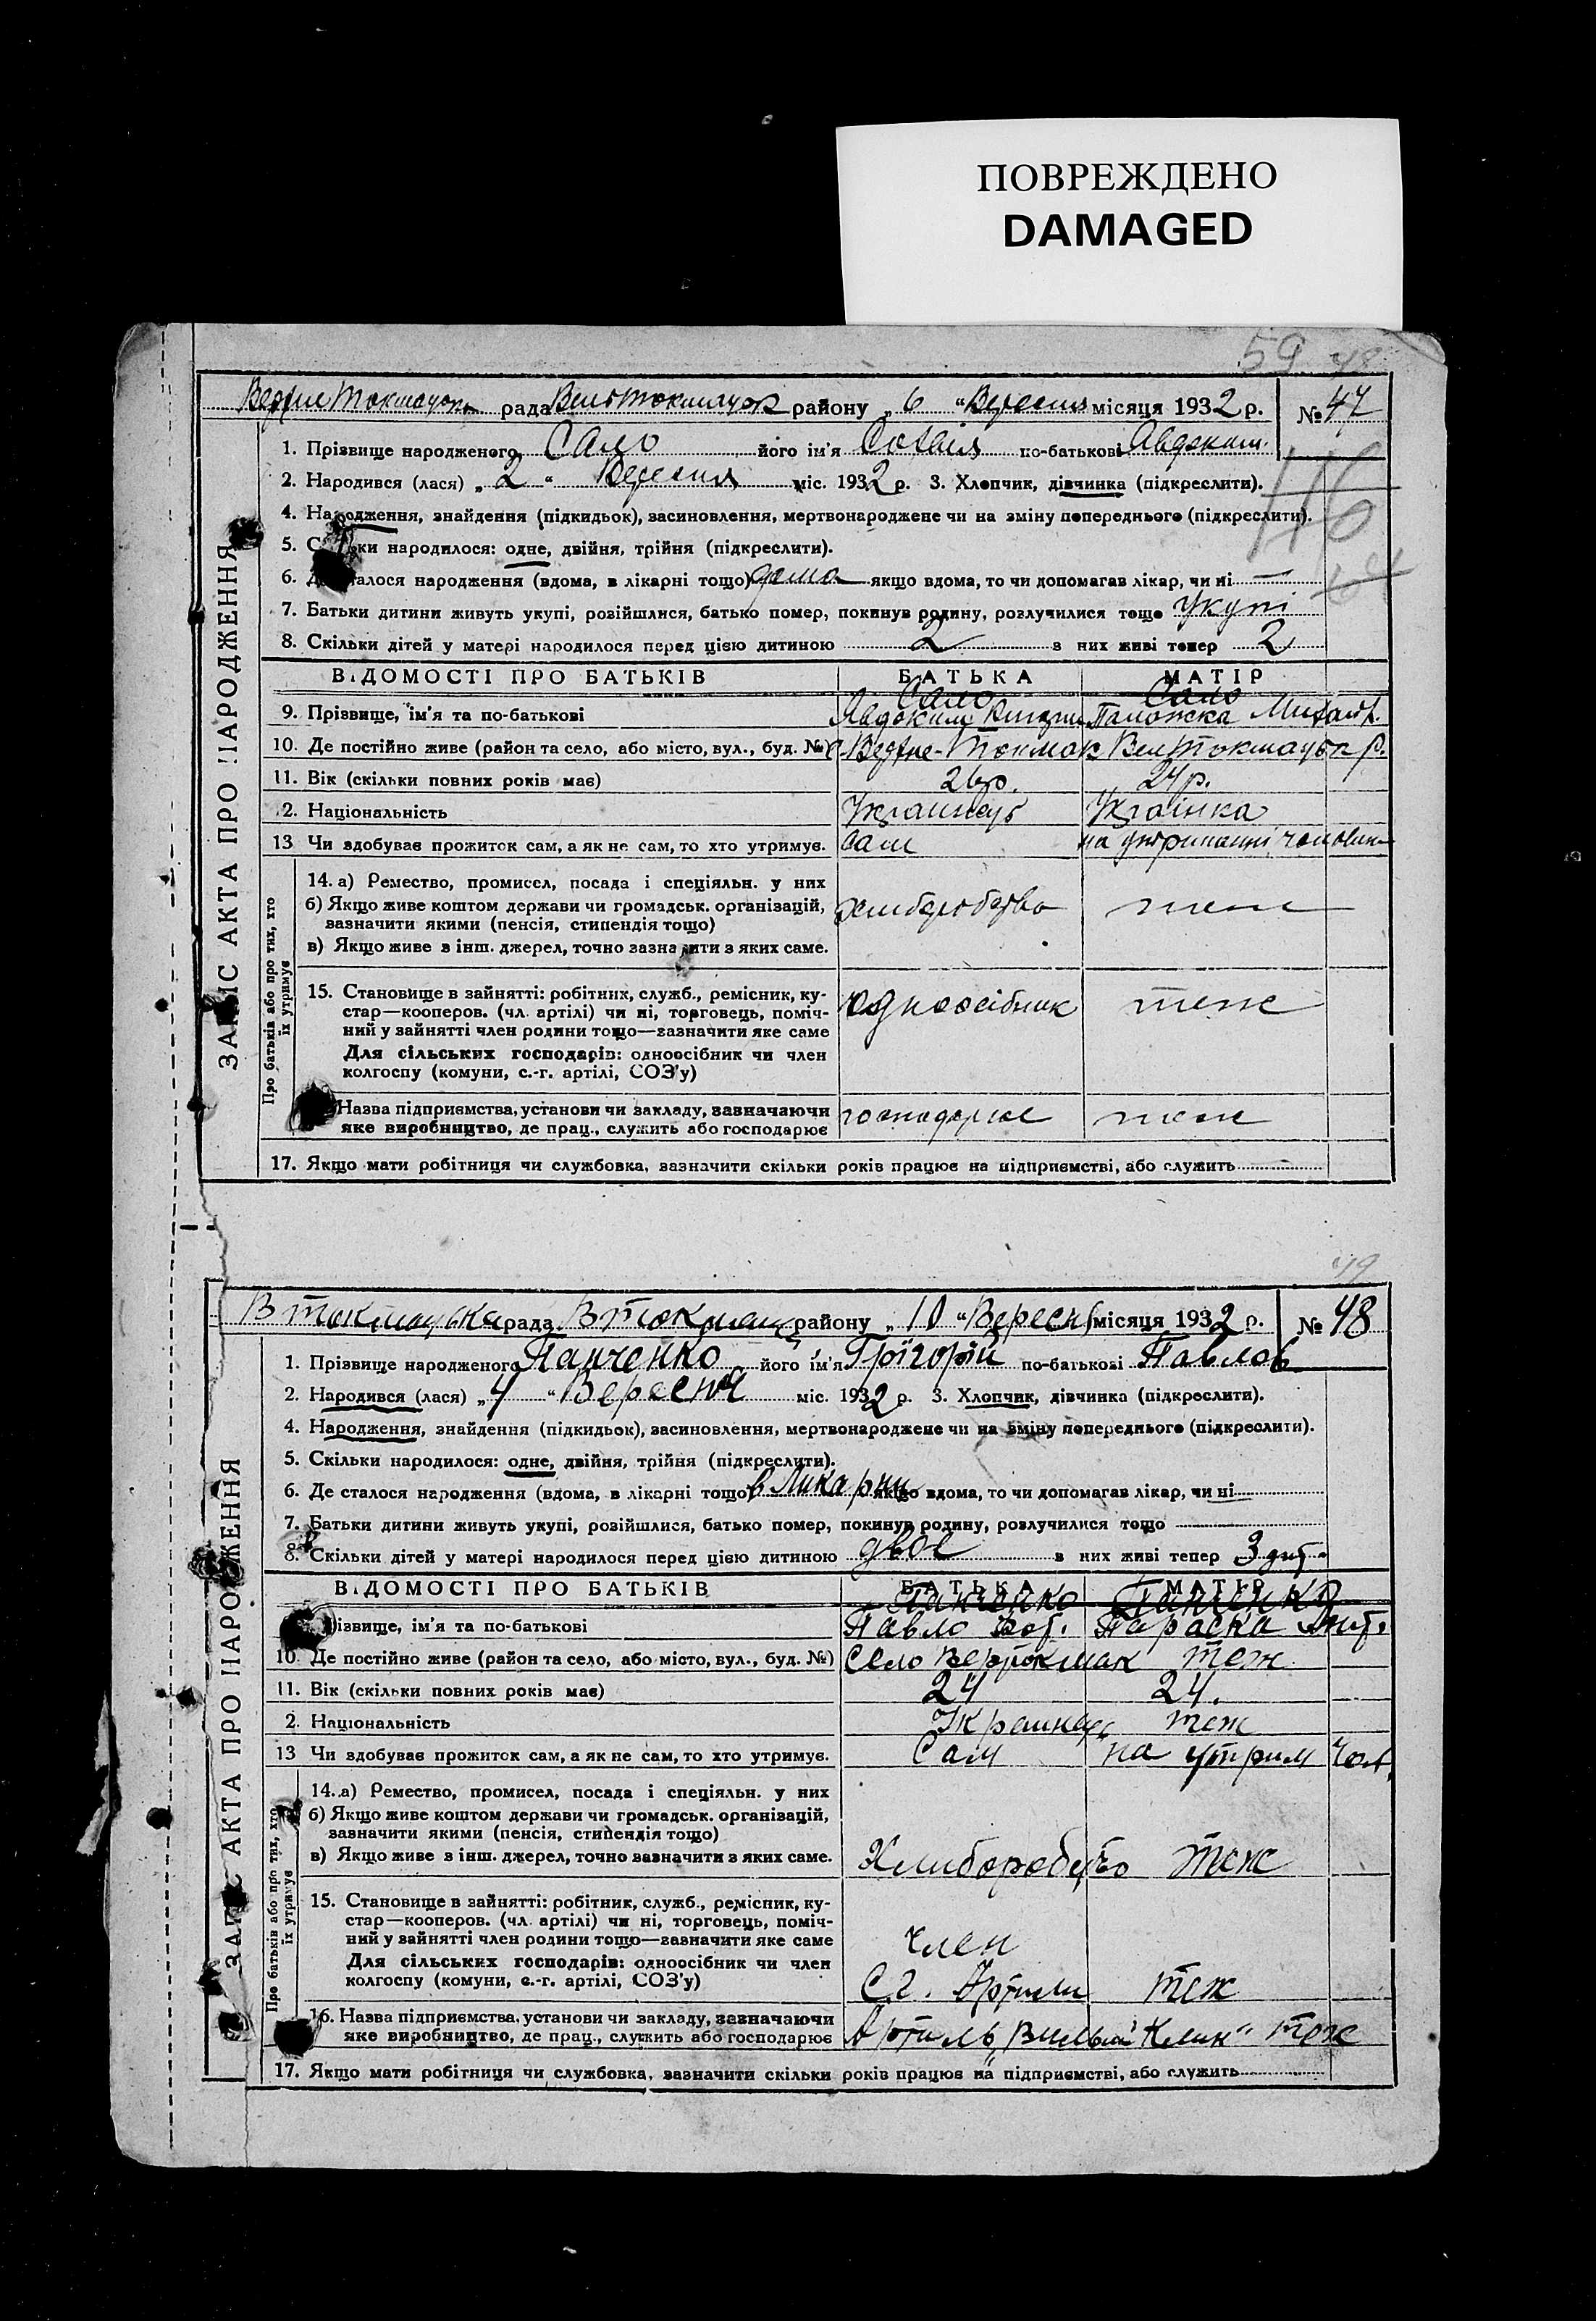 ПОВРЕЖДЕНО
DAMAGED
59 48
рада району „ 6 “ Вересня місяця 1932 р. № 47
1. Прізвище народженого Сало його ім'я Софія по-батькові Авдоким.
2. Народився (лася) „ 2 “ Вересня міс. 1932 р. 3. Хлопчик, дівчинка (підкреслити).
116
4. Народження, знайдення (підкидьок), засиновлення, мертвонароджене чи на зміну попереднього (підкреслити).
5. Скільки народилося: одне, двійня, трійня (підкреслити).
6. Де сталося народження (вдома, в лікарні тощо) дома якщо вдома, то чи допомагав лікар, чи ні —
7. Батьки дитини живуть укупі, розійшлися, батько помер, покинув родину, розлучилися тощо укупі
8. Скільки дітей у матері народилося перед цією дитиною 2 з них живі тепер 2
ВІДОМОСТІ ПРО БАТЬКІВ БАТЬКА МАТІР
Сало Сало
9. Прізвище, ім'я та по-батькові Авдоким Михайл.
10. Де постійно живе (район та село, або місто, вул., буд. №)
11. Вік (скільки повних років має) 26 р. 24 р.
12. Національність Українець Українка
13 Чи здобуває прожиток сам, а як не сам, то хто утримує. сам на утриманні чоловіка
ЗАПИС АКТА ПРО НАРОДЖЕННЯ
Про батьків або про тих, хто їх утримує
14. а) Ремество, промисел, посада і спеціяльн. у них
б) Якщо живе коштом держави чи громадськ. організацій, хлиборобство теж
зазначити якими (пенсія, стипендія тощо)
в) Якщо живе з інш. джерел, точно зазначити з яких саме.
15. Становище в зайнятті: робітник, служб., ремісник, ку- одноосібник теж
стар—кооперов. (чл. артілі) чи ні, торговець, поміч-
ний у зайнятті член родини тощо—зазначити яке саме
Для сільських господарів: одноосібник чи член
колгоспу (комуни, с.-г. артілі, СОЗ'у)
Назва підприємства, установи чи закладу, зазначаючи господарює теж
яке виробництво, де прац., служить або господарює
17. Якщо мати робітниця чи службовка, зазначити скільки років працює на підприємстві, або служить
49
В Токмацька рада В Токмац району „ 10 “ Вересня місяця 1932 р. № 48
1. Прізвище народженого Панченко його ім'я Грігорій по-батькові Павлов
2. Народився (лася) „ 4 “ Вересня міс. 1932 р. 3. Хлопчик, дівчинка (підкреслити).
4. Народження, знайдення (підкидьок), засиновлення, мертвонароджене чи на зміну попереднього (підкреслити).
5. Скільки народилося: одне, двійня, трійня (підкреслити).
6. Де сталося народження (вдома, в лікарні тощо) в Ликарни якщо вдома, то чи допомагав лікар, чи ні
7. Батьки дитини живуть укупі, розійшлися, батько помер, покинув родину, розлучилися тощо
8. Скільки дітей у матері народилося перед цією дитиною двоє з них живі тепер 3 дит.
ВІДОМОСТІ ПРО БАТЬКІВ БАТЬКА МАТІР
Панченко Панченко
Прізвище, ім'я та по-батькові Павло Параска
10. Де постійно живе (район та село, або місто, вул., буд. №) Село теж
11. Вік (скільки повних років має) 24 24.
2. Національність Украинець теж
13 Чи здобуває прожиток сам, а як не сам, то хто утримує. Сам на утрим Чол.
ЗАПИС АКТА ПРО НАРОДЖЕННЯ
Про батьків або про тих, хто їх утримує
14. а) Ремество, промисел, посада і спеціяльн. у них
б) Якщо живе коштом держави чи громадськ. організацій,
зазначити якими (пенсія, стипендія тощо)
в) Якщо живе з інш. джерел, точно зазначити з яких саме. Хлиборобство теж
15. Становище в зайнятті: робітник, служб., ремісник, ку-
стар—кооперов. (чл. артілі) чи ні, торговець, поміч-
ний у зайнятті член родини тощо—зазначити яке саме член
Для сільських господарів: одноосібник чи член
колгоспу (комуни, с.-г. артілі, СОЗ'у) С.г. Артили теж
16. Назва підприємства, установи чи закладу, зазначаючи
яке виробництво, де прац., служить або господарює Артиль „ Клин“ теж
17. Якщо мати робітниця чи службовка, зазначити скільки років працює на підприємстві, або служить